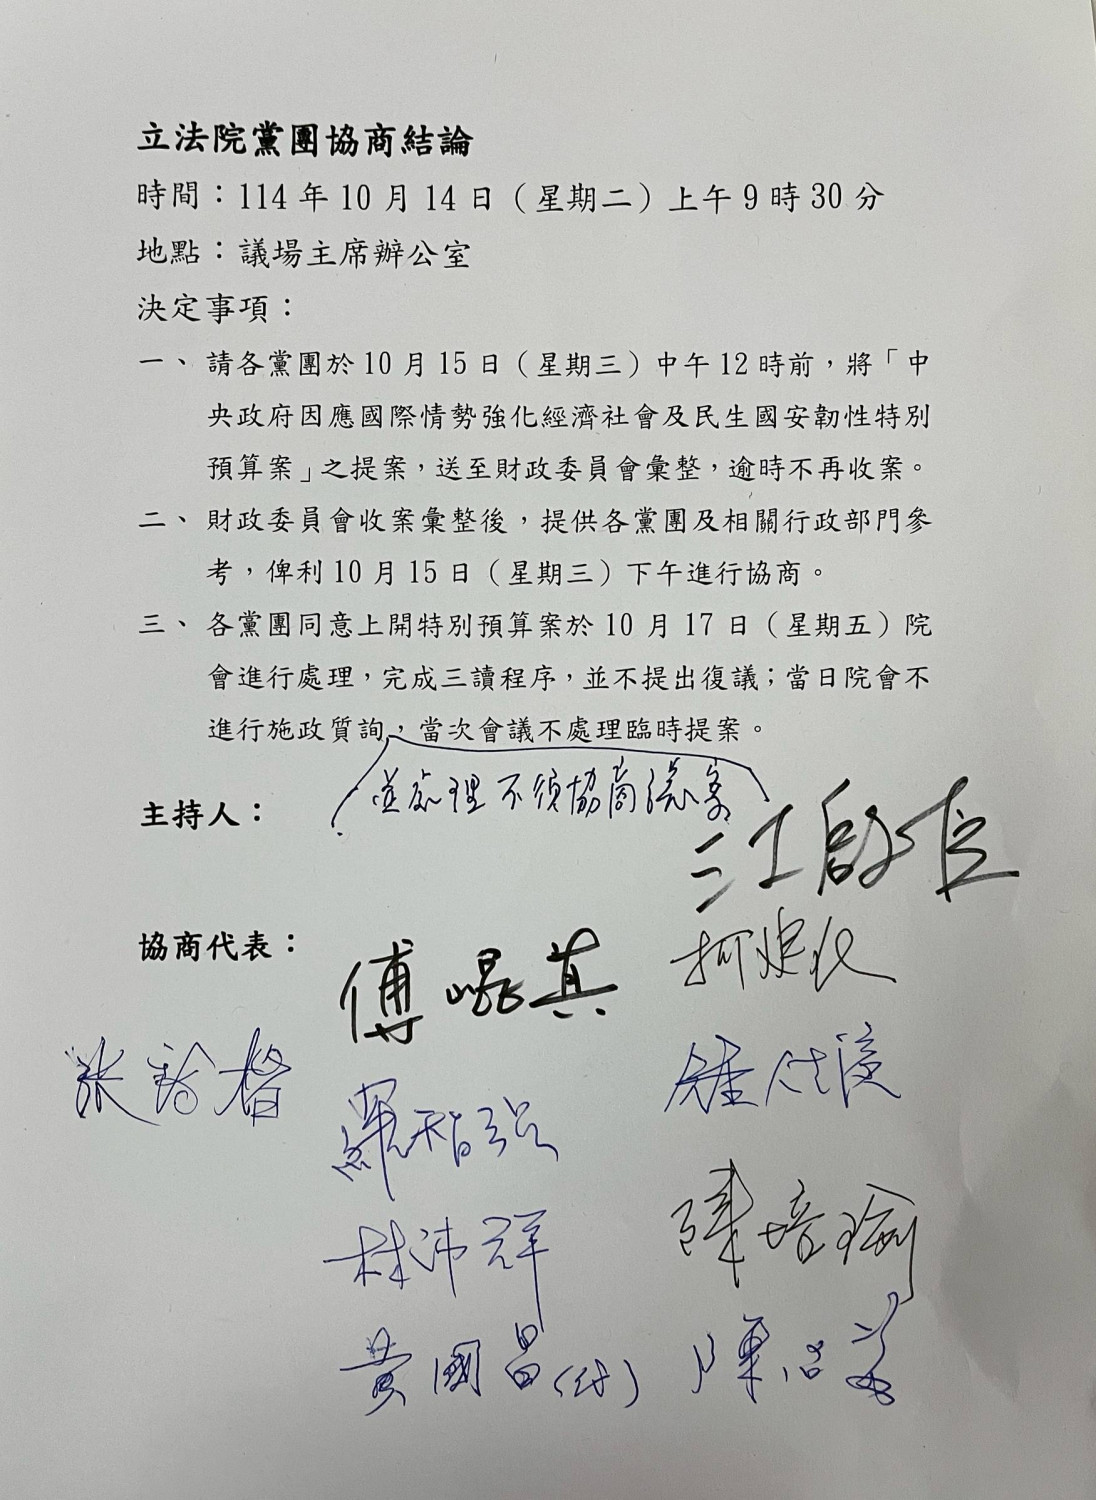 立法院黨團協商結論
時間：114年10月14日（星期二）上午9時30分
地點：議場主席辦公室
決定事項：
一、請各黨團於10月15日（星期三）中午12時前，將「中
央政府因應國際情勢強化經濟社會及民生國安韌性特別
預算案」之提案，送至財政委員會彙整，逾時不再收案。
二、財政委員會收案彙整後，提供各黨團及相關行政部門參
考，俾利10月15日（星期三）下午進行協商。
三、各黨團同意上開特別預算案於10月17日（星期五）院
會進行處理，完成三讀程序，並不提出復議；當日院會不
進行施政質詢，當次會議不處理臨時提案。
並處理不須協商議案
主持人：
江啟臣
協商代表：
傅崐萁 柯建銘
羅智強 鍾佳濱
林沛祥 陳培瑜
黃國昌